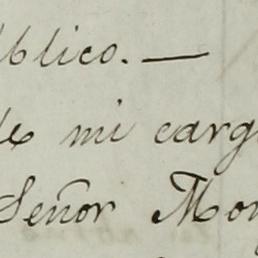 blico.—
de mi carg
Señor Mon